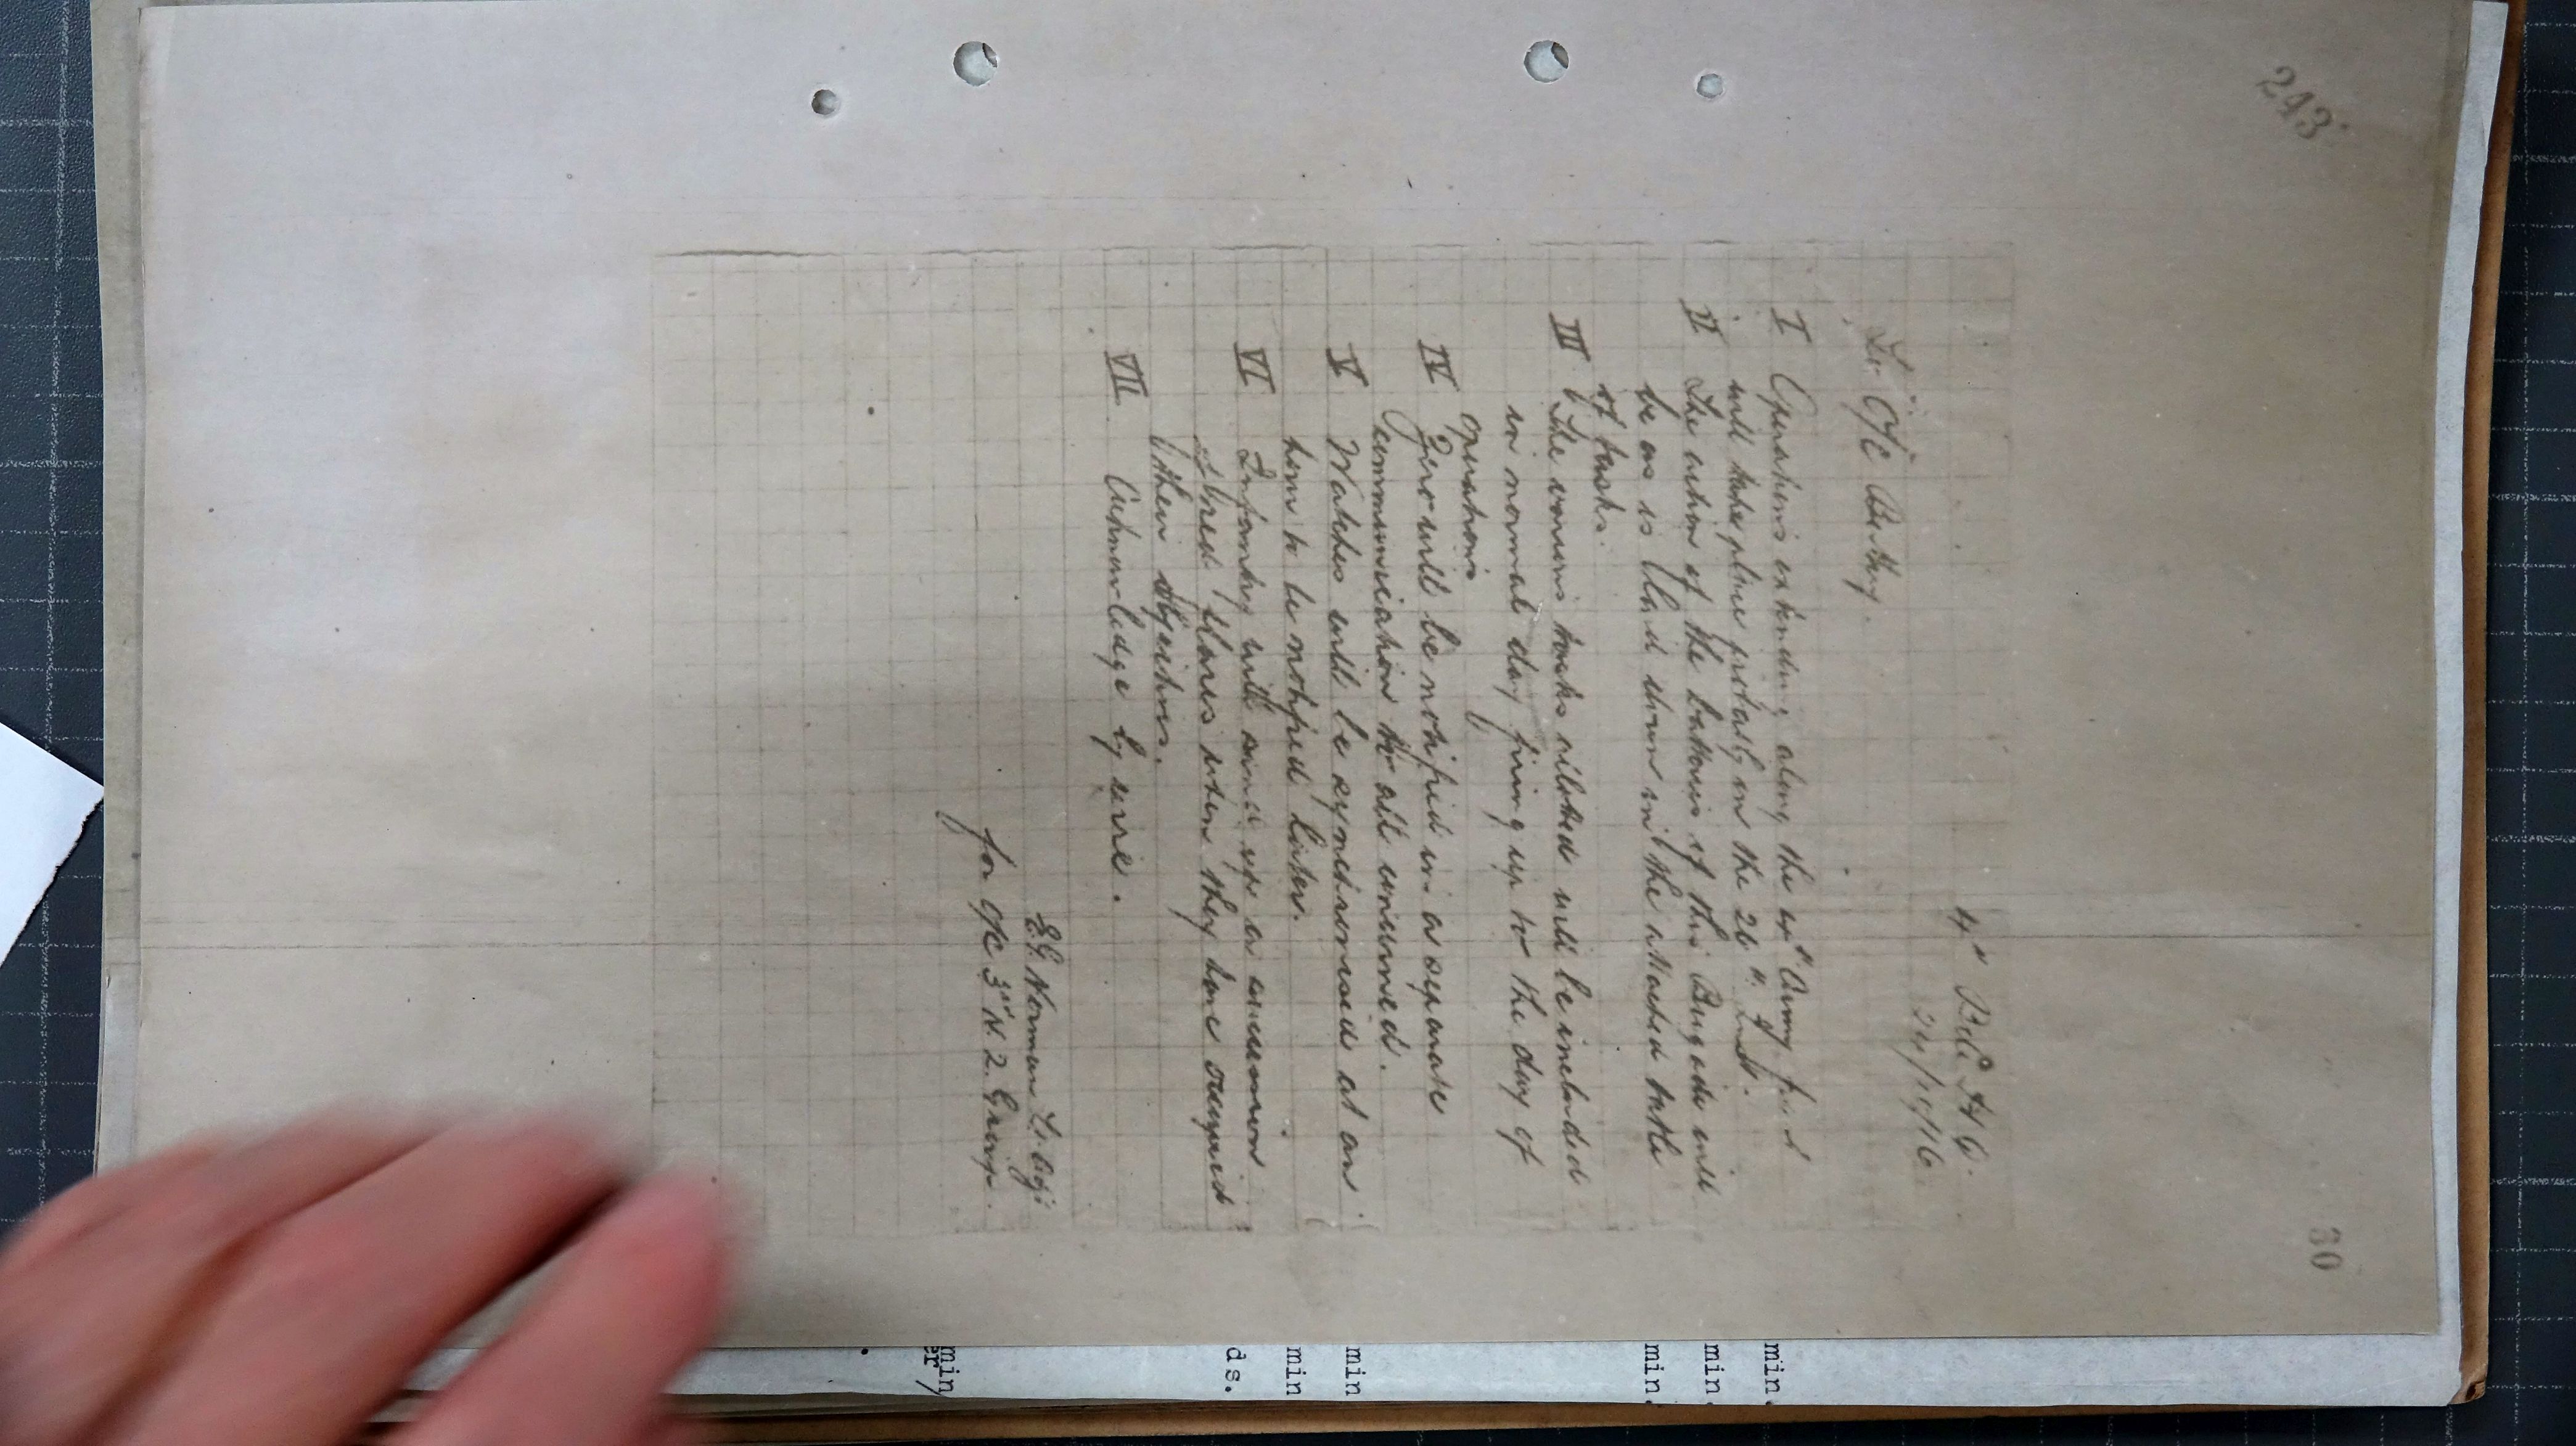 243
30
4th Bde H.Q.
24/10/16
To O/C Battery.
I Operations extending along the 4th Army front
will take place probably on the 26th Inst.
II The action of the batteries of this Brigade will
be as is laid down in the attached table
of tasks.
III The various tasks allotted will be included
in normal day firing up to the day of
operations
IV Zero will be notified in a separate
communication to all concerned.
V Watches will be synchronised at an
hour to be notified later.
VI Infantry will send up a
red flares when they have occupied
their objectives.
VII Acknowledge by wire.
E.G. Norman Lt. Adjt
for O/C 3rd N.Z. Group.
min.
min.
min.
min
min
ds.
min